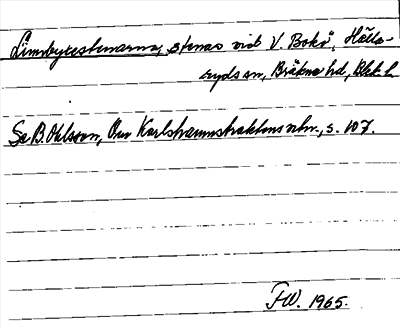 Limbyrestenarna, stenar vid V. Bokö, Hälla-
ryds sn, Bräkne hd, Blek. l.
Se B. Ohlsson, Om Karlshamnstraktens nln., s. 107.
FW. 1965.